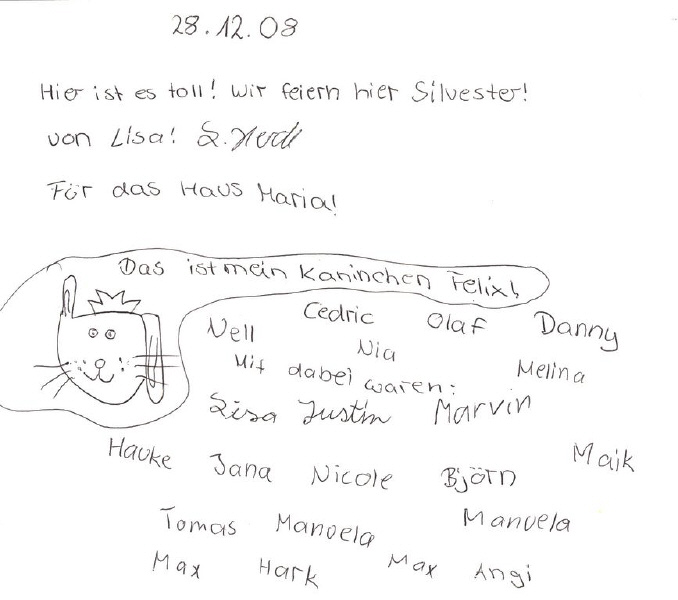 28.12.08
Hier ist es toll! Wir feiern hier Silvester!
von Lisa!
Für das Haus Maria!
Das ist mein Kaninchen Felix!
Nell Cedric Olaf Danny
Nia
Mit dabei waren: Melina
Lisa Justin Marvin
Hauke Jana Nicole Björn Maik
Tomas Manuela Manuela
Max Hark Max Angi